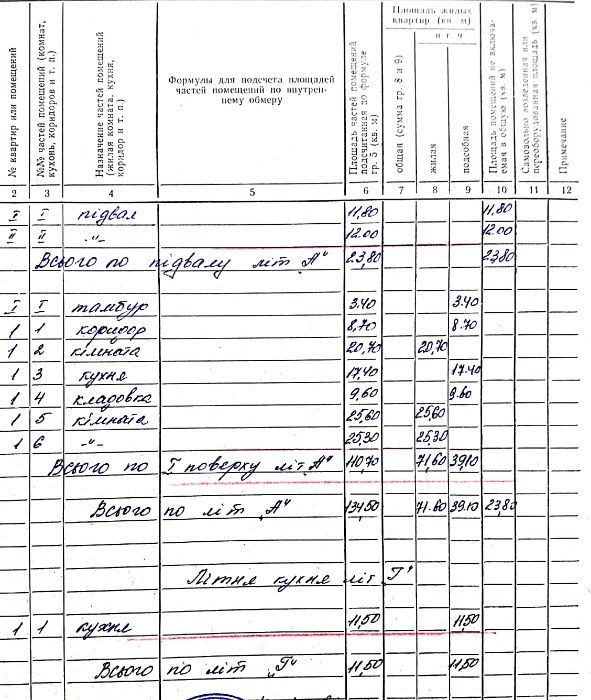 № квартир или помещений
№№ частей помещений (комнат, кухонь, коридоров и т. п.)
Назначение частей помещений (жилая комната, кухня, коридор и т. п.)
Формулы для подсчета площадей
частей помещений по внутрен-
нему обмеру
Площадь частей помещений подсчитанная по формуле гр. 5 (кв. м)
Площадь жилых
квартир (кв. м)
общая (сумма гр. 8 и 9)
в т. ч.
жилая
подсобная
Площадь помещений не включа-емая в общую (кв. м)
Самовольно возведенная или переоборудованная площадь (кв. м)
Примечание
2 3 4 5 6 7 8 9 10 11 12
I I підвал 11,80 11.80
II II -"- 12.00 12.00
Всього по підвалу літ "А" 23,80 23,80
I I тамбур 3.40 3.40
1 1 коридор 8,70 8.70
1 2 кімната 20,70 20,70
1 3 кухня 17,40 17.40
1 4 кладовка 9,60 9.60
1 5 кімната 25,60 25,60
1 6 -"- 25,30 25,30
Всього по I поверху літ "А" 110,70 71,60 39,10
Всього по літ "А" 134,50 71.60 39.10 23,80
Літня кухня літ "Г"
1 1 кухня 11,50 11,50
Всього по літ "Г" 11,50 11,50